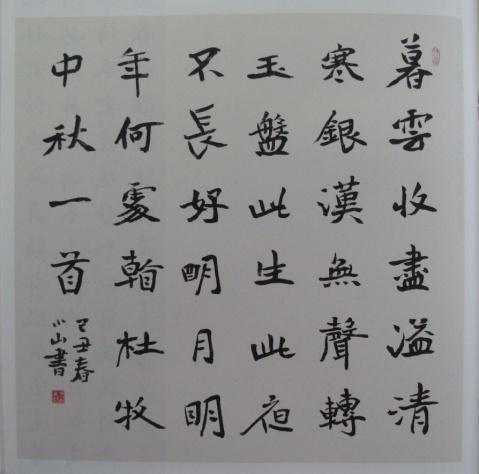 暮雲收盡溢清
寒銀漢無聲轉
玉盤此生此夜
不長好明月明
年何處看杜牧
中秋一首
己丑春
小山書